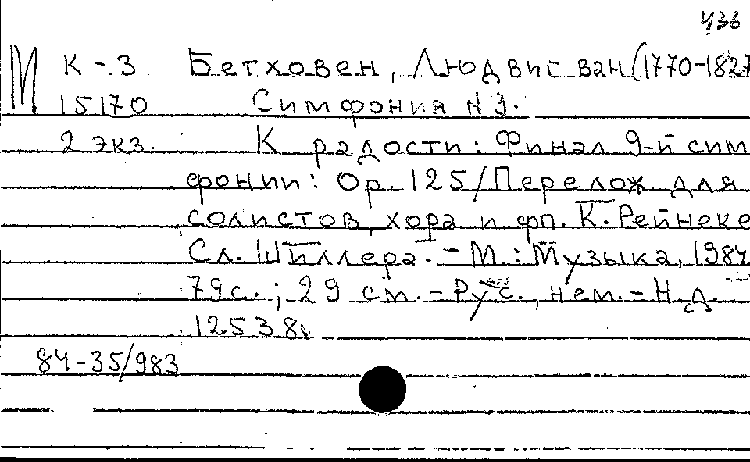 436
М К-3 Бетховен, Людвиг ван (1770-1827
15170 Симфония N 9.
2 экз. К радости: Финал 9-й сим
фонии: Ор. 125/Перелож. для
солистов, хора и фп. К. Рейнеке
Сл. Шиллера. - М.: Музыка, 1984
79с.; 29 см. - Рус., нем. - Н.д.
12538.
84-35/983